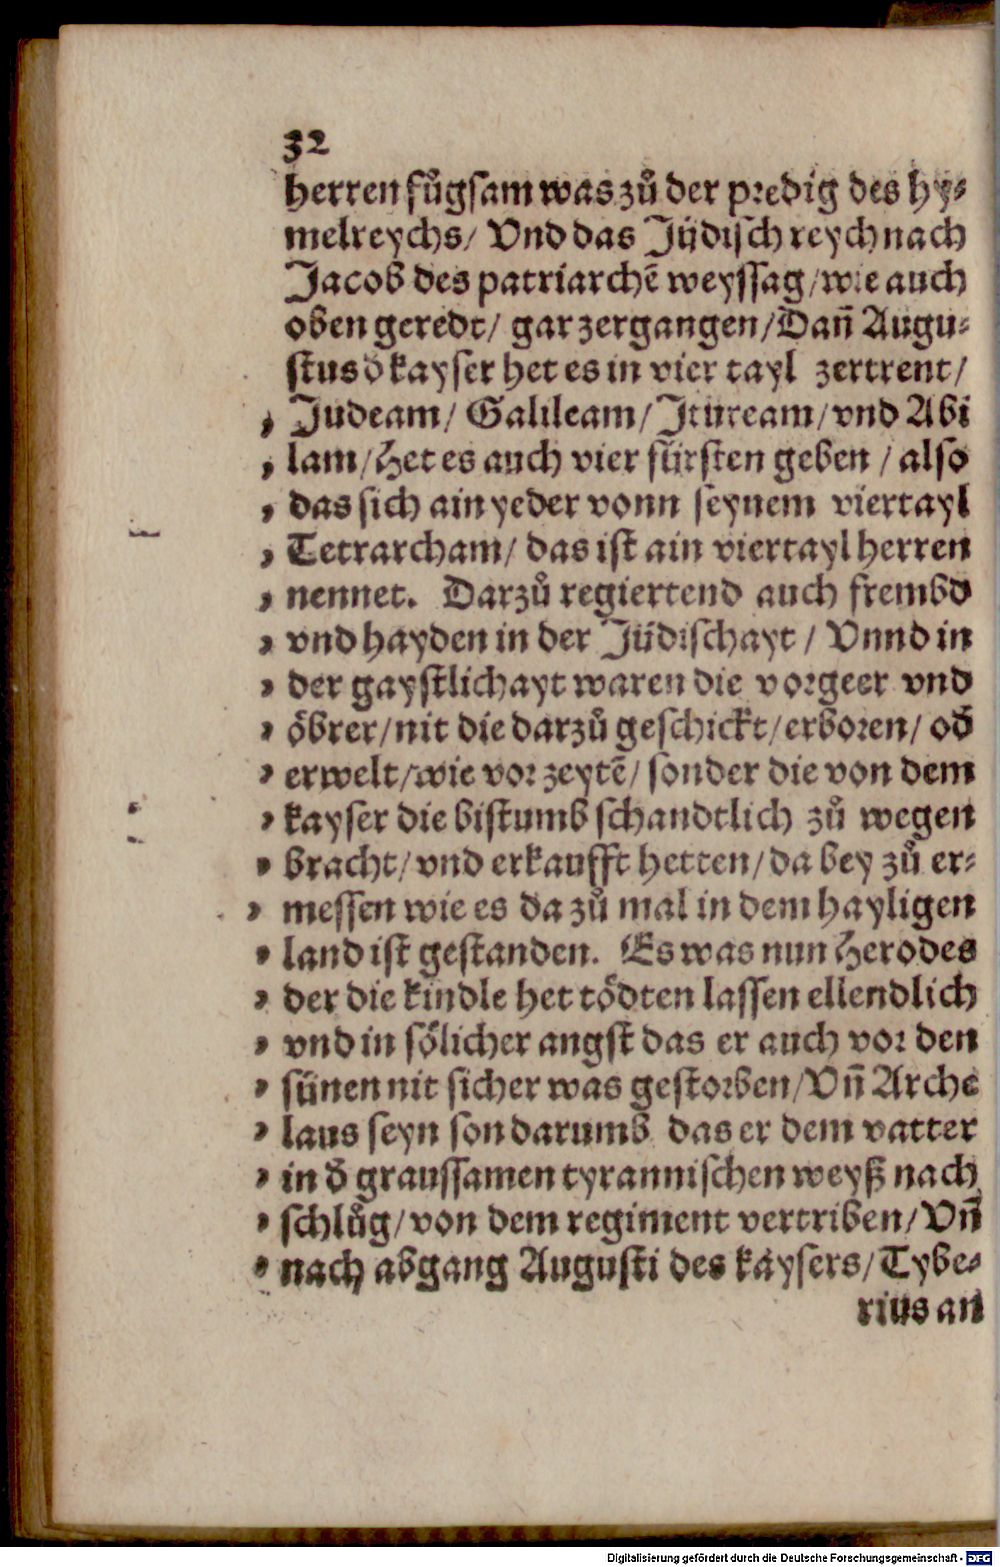 32
herren fuͤgsam was zuͦ der predig des hy⸗
melreychs/ Vnd das Jüdisch reych nach
Jacob des patriarchē weyssag/wie auch
oben geredt/ gar zergangen/Dan̄ Augu⸗
stus d̕ kayser het es in vier tayl zertrent/
Judeam/ Galileam/Jtuream/vnd Abi
lam/Het es auch vier fürsten geben / also
das sich ain yeder vonn seynem viertayl
Tetrarcham/ das ist ain viertayl herren
nennet. Darzuͦ regiertend auch frembd
vnd hayden in der Jüdischayt / Vnnd in
der gaystlichayt waren die vorgeer vnd
oͤbrer/nit die darzuͦ geschickt/erboren/ od̕
erwelt/wie vor zeytē/ sonder die von dem
kayser die bistumb schandtlich zuͦ wegen
bracht/vnd erkaufft hetten/da bey zuͦ er⸗
messen wie es da zuͦ mal in dem hayligen
land ist gestanden. Es was nun Herodes
der die kindle het toͤdten lassen ellendlich
vnd in soͤlicher angst das er auch vor den
sünen nit sicher was gestorben/Vn̄ Arche
laus seyn son darumb das er dem vatter
in d̕ graussamen tyrannischen weyß nach
schluͦg/von dem regiment vertriben/Vn̄
nach abgang Augusti des kaysers/Tybe⸗
rius an
Digitalisierung gefördert durch die Deutsche Forschungsgemeinschaft - DFG